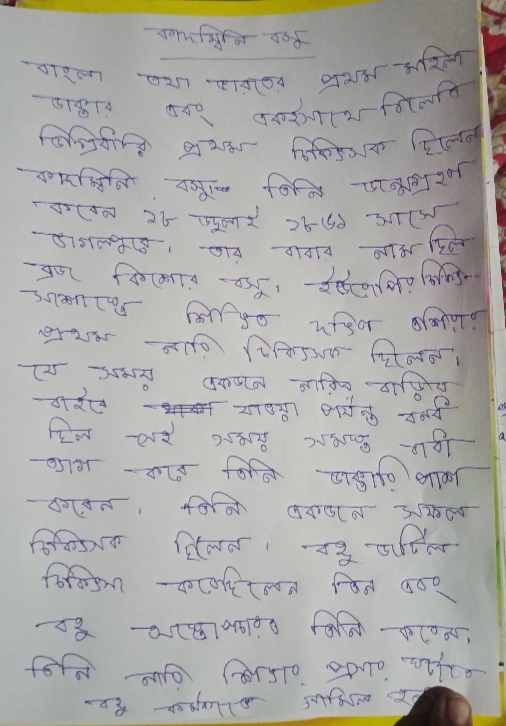 কাদম্বিনি বসু
বাংলা তথা ভারতের প্রথম মহিলা
ডাক্তার এবং একইসাথে বিলেতি
ডিগ্রিধারি প্রথম চিকিৎসক ছিলেন
কাদম্বিনি বসু। তিনি জন্মগ্রহণ
করেন ১৮ জুলাই ১৮৬১ সালে
ভাগলপুরে। তার বাবার নাম ছিল
ব্রজ কিশোর বসু। ইউরোপিয় চিকিৎ-
সাশাস্ত্রে শিক্ষিত দক্ষিণ এশিয়ার
প্রথম নারি চিকিৎসক ছিলেন।
যে সময় একজনে নারির বাড়ির
বাইরে যাওয়া পর্যন্ত বন্ধ
ছিল সেই সময় সমস্ত বাধা
ত্যাগ করে তিনি ডাক্তারি পাশ
করেন। তিনি একজনে সফল
চিকিৎসক ছিলেন। বহু জটিল
চিকিৎসা করেছিলেন তিন এবং
বহু অস্ত্রোপচারও তিনি করেন।
তিনি নারি শিক্ষার প্রসার
বহু সামিল